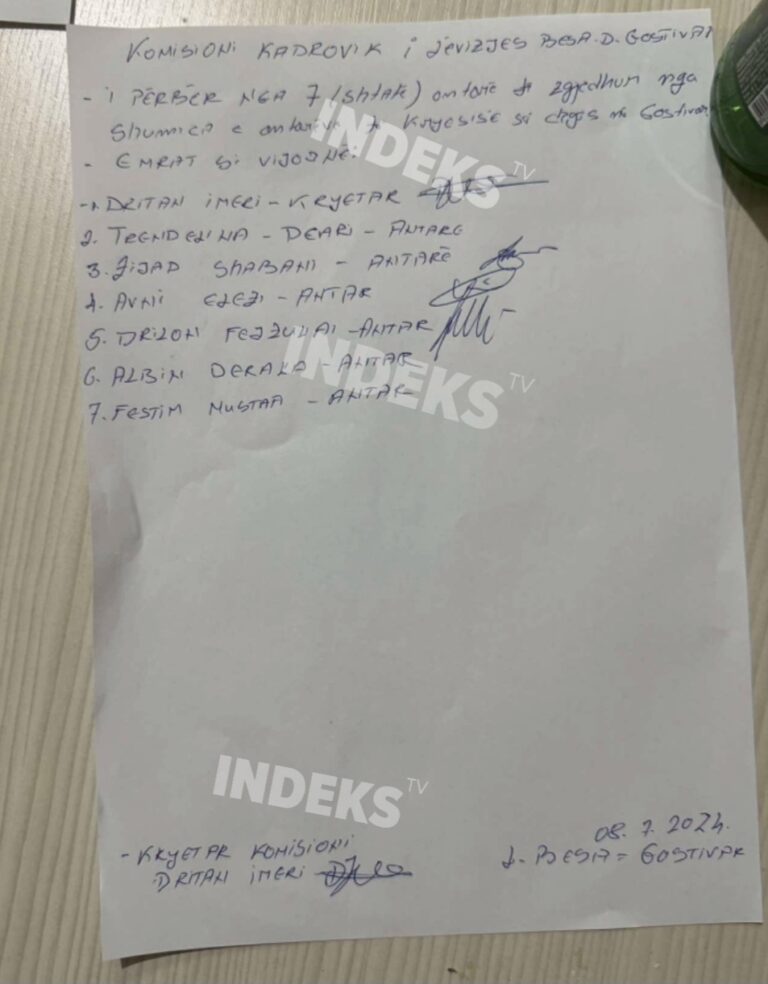 KOMISIONI KADROVIK I ZEVIZJES BESA. D. GOSTIVAR
- I PËRBËR NGA 7 (shtatë) antarë të zgjedhun nga
shumica e antarëve të Kryesisë së degës në Gostivar
- EMRAT SI VIJOJNË.
INDEKS TV
-1. DRITAN IMERI - KRYETAR
2. TRENDELINA - DEARI - ANTARE
3. ZIJAD SHABANI - ANTARË
4. AVNI EJEZI - ANTAR
5. DRILON FEJZULAI - ANTAR
6. ALBIN DERALA - ANTAR
INDEKS TV
7. FESTIM MUSTAA - ANTAR
INDEKS TV
08. 7. 2024.
- KRYETAR KOMISIONI
D. BESA = GOSTIVAR
DRITAN IMERI